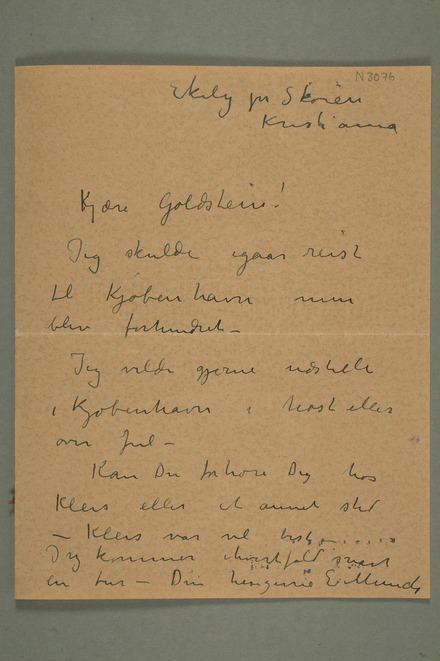 N 3076
Ekely pr Skøien
Kristiania
Kjære Goldstein!
Jeg skulde igaar reist
til Kjøbenhavn men
blev forhindret –
Jeg vilde gjerne udstille
i Kjøbenhavn i høst eller
over Jul –
Kan Du forhøre Dig hos
Kleis eller et annet sted
– Kleis var vel bedst
Jeg kommer ihvertfald snart
en tur – Din hengivne E. Munch